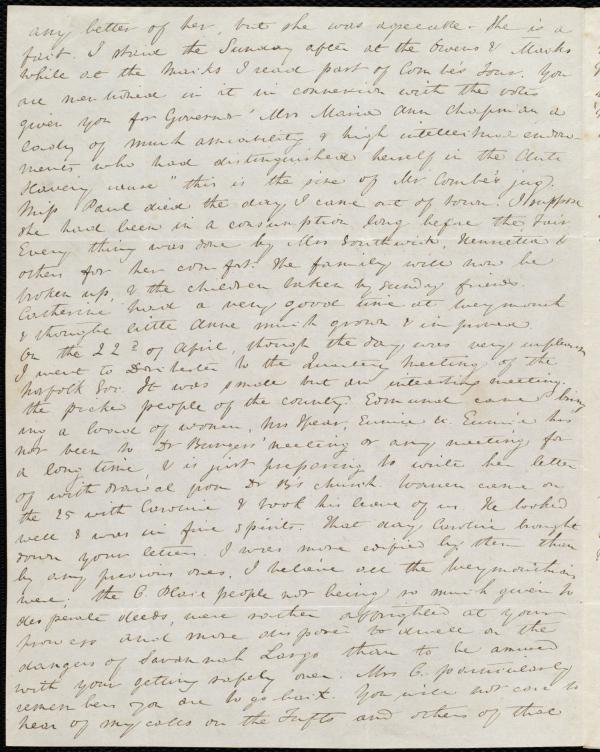 any better of her, but she was agreeable. She is a
fair. I staid the Sunday after at the Owens & Marks
While at the Marks I read part of Combe's Tour. You
are mentioned in it in connexion with the votes
given you for Governor "Mrs Maria Ann Chapman a
lady of much amiability & high intellectual endow-
ments who had distinguished herself in the Anti
Slavery cause" this is the size of Mr Combe's jug.
Miss Paul died the day I came out of town. I suppose
she had been in a consumption long before the Fair
Every thing was done by Mrs Southwick, Henrietta &
others for her comfort. The family will now be
broken up, & the children taken by sundry friends.
Catherine had a very good time at Weymouth
& thought little Anne much grown & improved.
On the 22d of April, though the day was very unpleasant
I went to Dorchester to the Quarterly Meeting of the
Norfolk Soc. It was small but an interesting meeting,
the picked people of the county. Edmund came bring
ing a load of women, Mrs Spear, Eunice &c. Eunice has
not been to Dr Burgess' meeting or any meeting for
a long time, & is just preparing to write her letter
of withdrawal from Dr B's church. Warren came on
the 25 with Caroline & took his leave of us. He looked
well & was in fine spirits. That day Caroline brought
down your letters. I was more edified by them than
by any previous ones. I believe all the Weymouthians
were; the C. Place people not being so much given to
desperate deeds, were rather affrighted at your
prowess and more disposed to dwell on the
dangers of Savannah Largo than to be amused
with your getting safely over. Mrs C. particularly
remembers you are to go back. You will not care to
hear of my calls on the Tufts and others of that